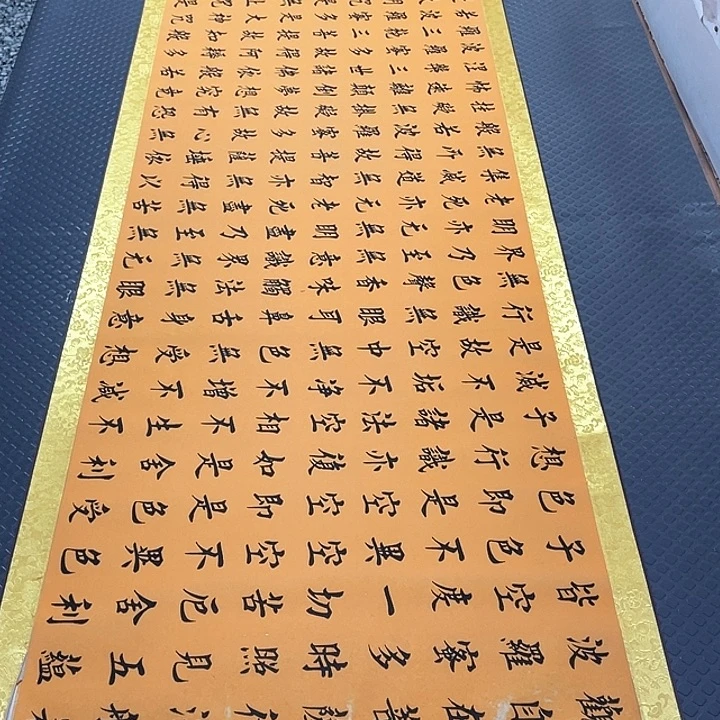 觀自在菩薩行
波羅蜜多時照見五蘊
皆空度一切苦厄舍利
子色不異空空不異色
色即是空空即是色受
想行識亦復如是舍利
子是諸法空相不生不
滅不垢不淨不增不減
是故空中無色無受想
行識無眼耳鼻舌身意
無色聲香味觸法無眼
界乃至無意識界無无
明亦无無明盡乃至無
老死亦无老死盡無苦
集滅道無智亦無得以
無所得故菩提薩埵依
般若波羅蜜多故心無
罣礙無罣礙故無有恐
怖遠離顛倒夢想究竟
涅槃三世諸佛依般若
波羅蜜多故得阿耨多
羅三藐三菩提故知般
若波羅蜜多是大神咒